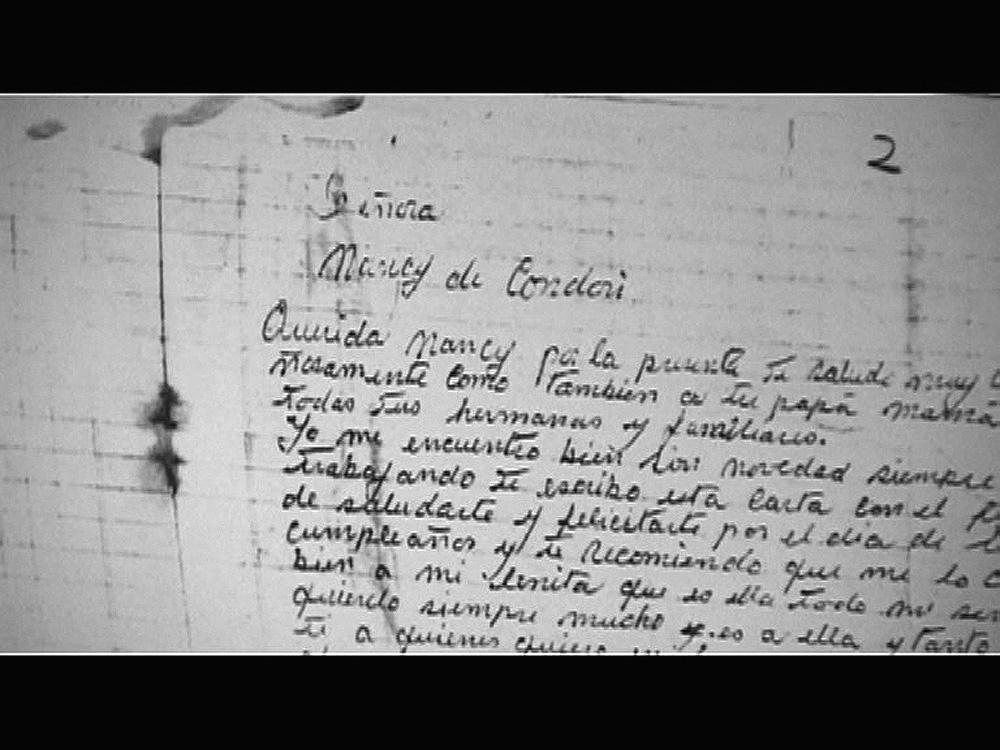 2
Señora
Nancy de Condori
Querida Nancy por la presente te salude muy
como tambien a tu papá mamá
todas tus hermanas y familiares.
Yo me encuentro bien sin novedad siempre
trabajando te escribo esta carta con el
de saludarte y felicitarte por el dia de
cumpleaños y te recomiendo que me lo
bien a mi que es ella todo mi
quiendo siempre mucho y es a ella y tanto
ti a quienes quiero